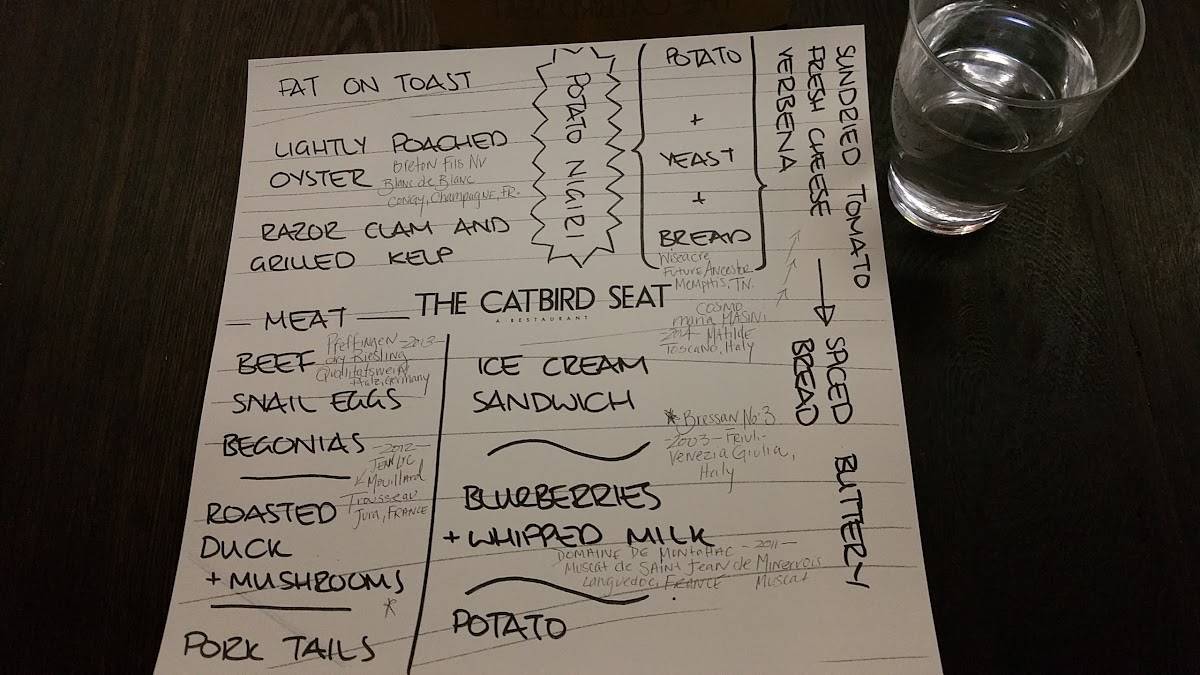 FAT ON TOAST
LIGHTLY POACHED
OYSTER
Breton Fils NV
Blanc de Blanc
Congy, Champagne, FR.
RAZOR CLAM AND
GRILLED KELP
POTATO NIGIRI
POTATO
+
YEAST
+
BREAD
Wiseacre
Future Ancestor
Memphis, TN.
SUNDRIED TOMATO
FRESH CHEESE
VERBENA
SPICED BUTTERY
BREAD
COSIMO
maria MASINI
2014 MATILDE
Toscano, Italy
THE CATBIRD SEAT
A RESTAURANT
MEAT
BEEF
Pfeffingen -2013-
dry Riesling
Qualitatswein
Pfalz, Germany
SNAIL EGGS
BEGONIAS
-2012-
Mouillard
Trousseau
Jura, FRANCE
ROASTED
DUCK
+ MUSHROOMS
*
PORK TAILS
ICE CREAM
SANDWICH
* Bressan No. 3
-2003- Friuli-
Venezia Giulia,
Italy
BLURBERRIES
+ WHIPPED MILK
DOMAINE DE MONTAHAC -2011-
Muscat de SAINT Jean de Minervois
Languedoc, FRANCE Muscat
POTATO